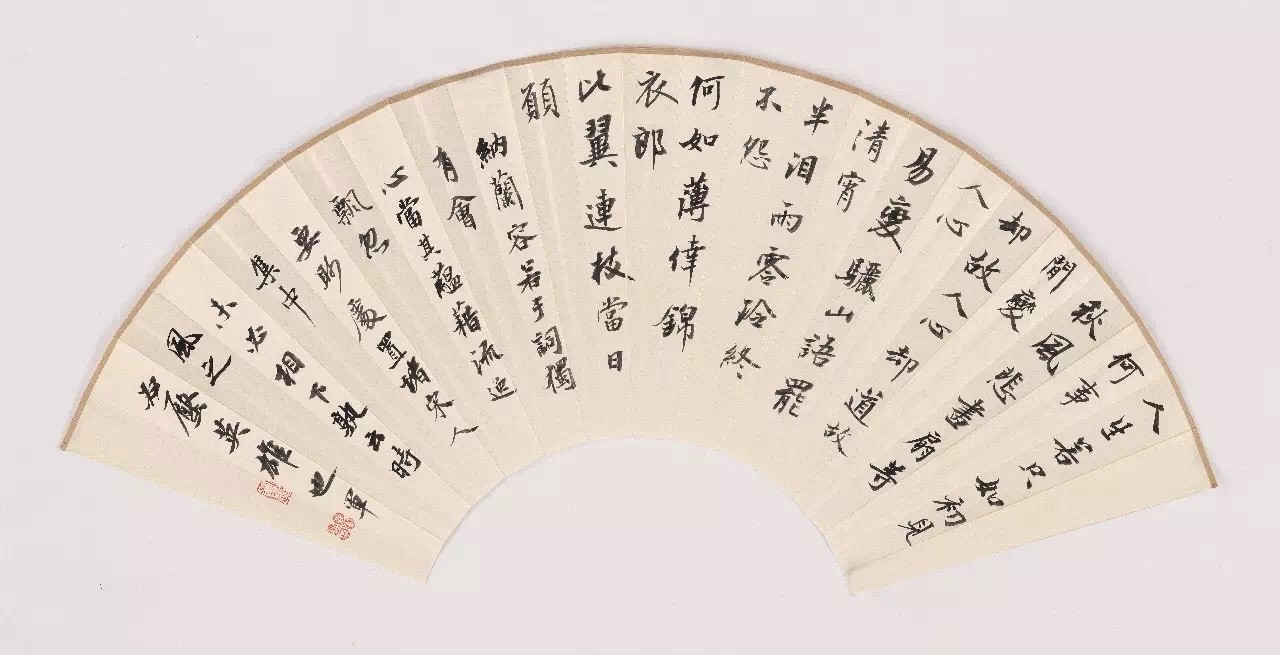 人生若只如初見
何事
秋風悲畫扇等
閒變
却故人心却道故
人心
易變驪山語罷
清宵
半泪雨零玲終
不怨
何如薄倖錦
衣郎
比翼連枝當日
願
納蘭容若于詞獨
有會
心當其蘊藉流逸
飄忽
要眇處置堵宋人
集中
未必相下孰云時
風之
壓英雄也 軍